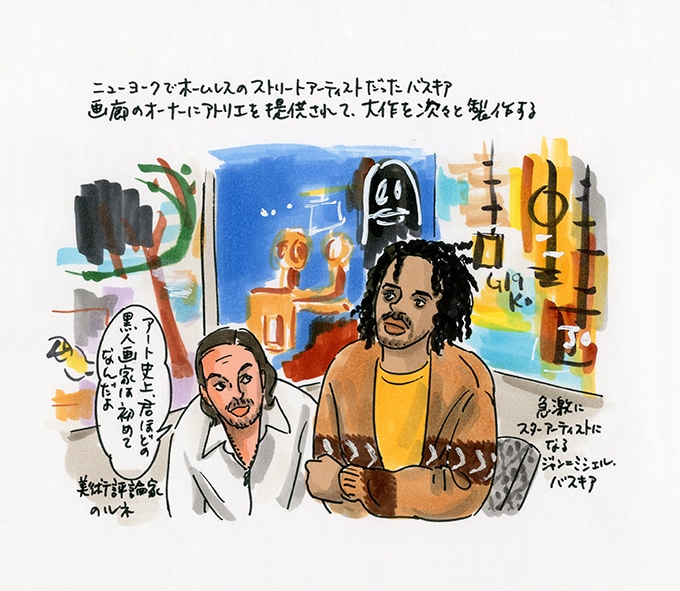 ニューヨークでホームレスのストリートアーティストだったバスキア
画廊のオーナーにアトリエを提供されて、大作を次々と製作する
アート史上、君ほどの
黒人画家は初めて
なんだよ
美術評論家
のルネ
急激に
スターアーティストに
なる
ジャン=ミシェル・
バスキア